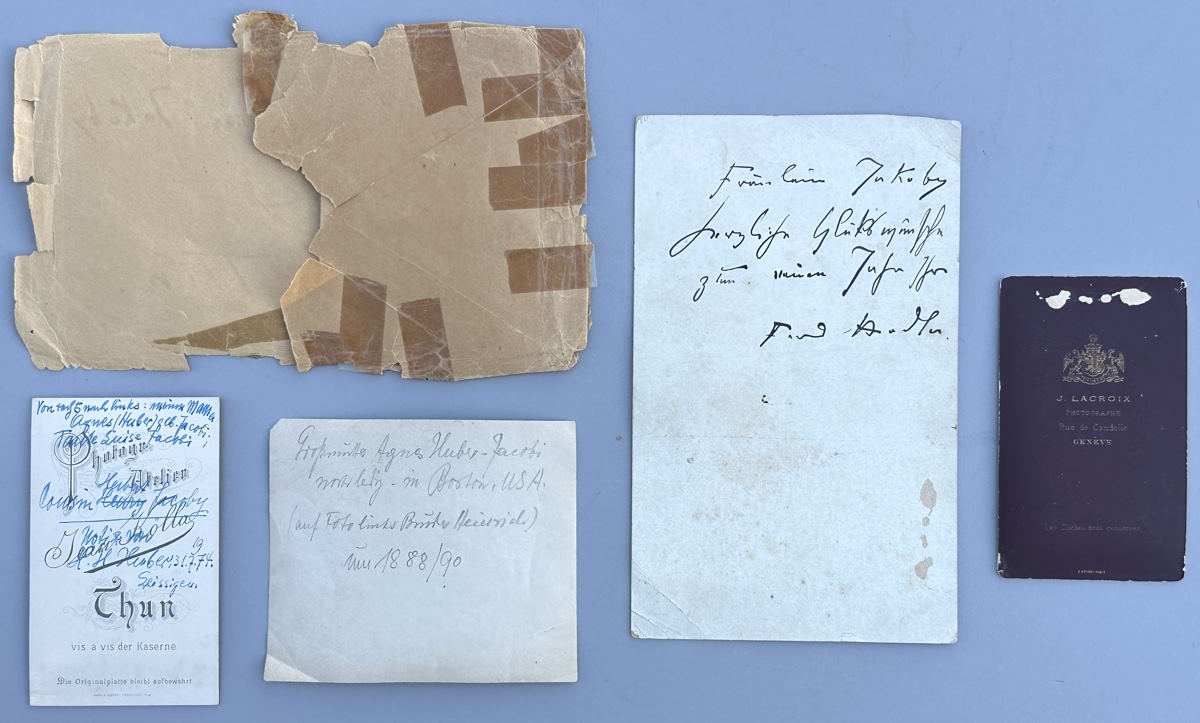 Jakoby
Fräulein Jakoby
herzliche Glückswünsche
zum neuen Jahr Ihr
Ferd Hodler.
J. LACROIX
PHOTOGRAPHE
Rue de Candolle
GENÈVE
Les Clichés sont conservés
Von rechts nach links: meine Mama
Agnes (Huber) geb. Jacobi;
Tante Luise Jacobi;
Photogr.
Atelier
Cousin Henry Jacoby
Notiz von
H. Huber, 31.7.1974.
Leissigen.
Thun
vis a vis der Kaserne
Die Originalplatte bleibt aufbewahrt
Großmutter Agnes Huber-Jacobi
noch ledig - in Boston, USA.
(auf Foto links Bruder Heinrich)
um 1888/90